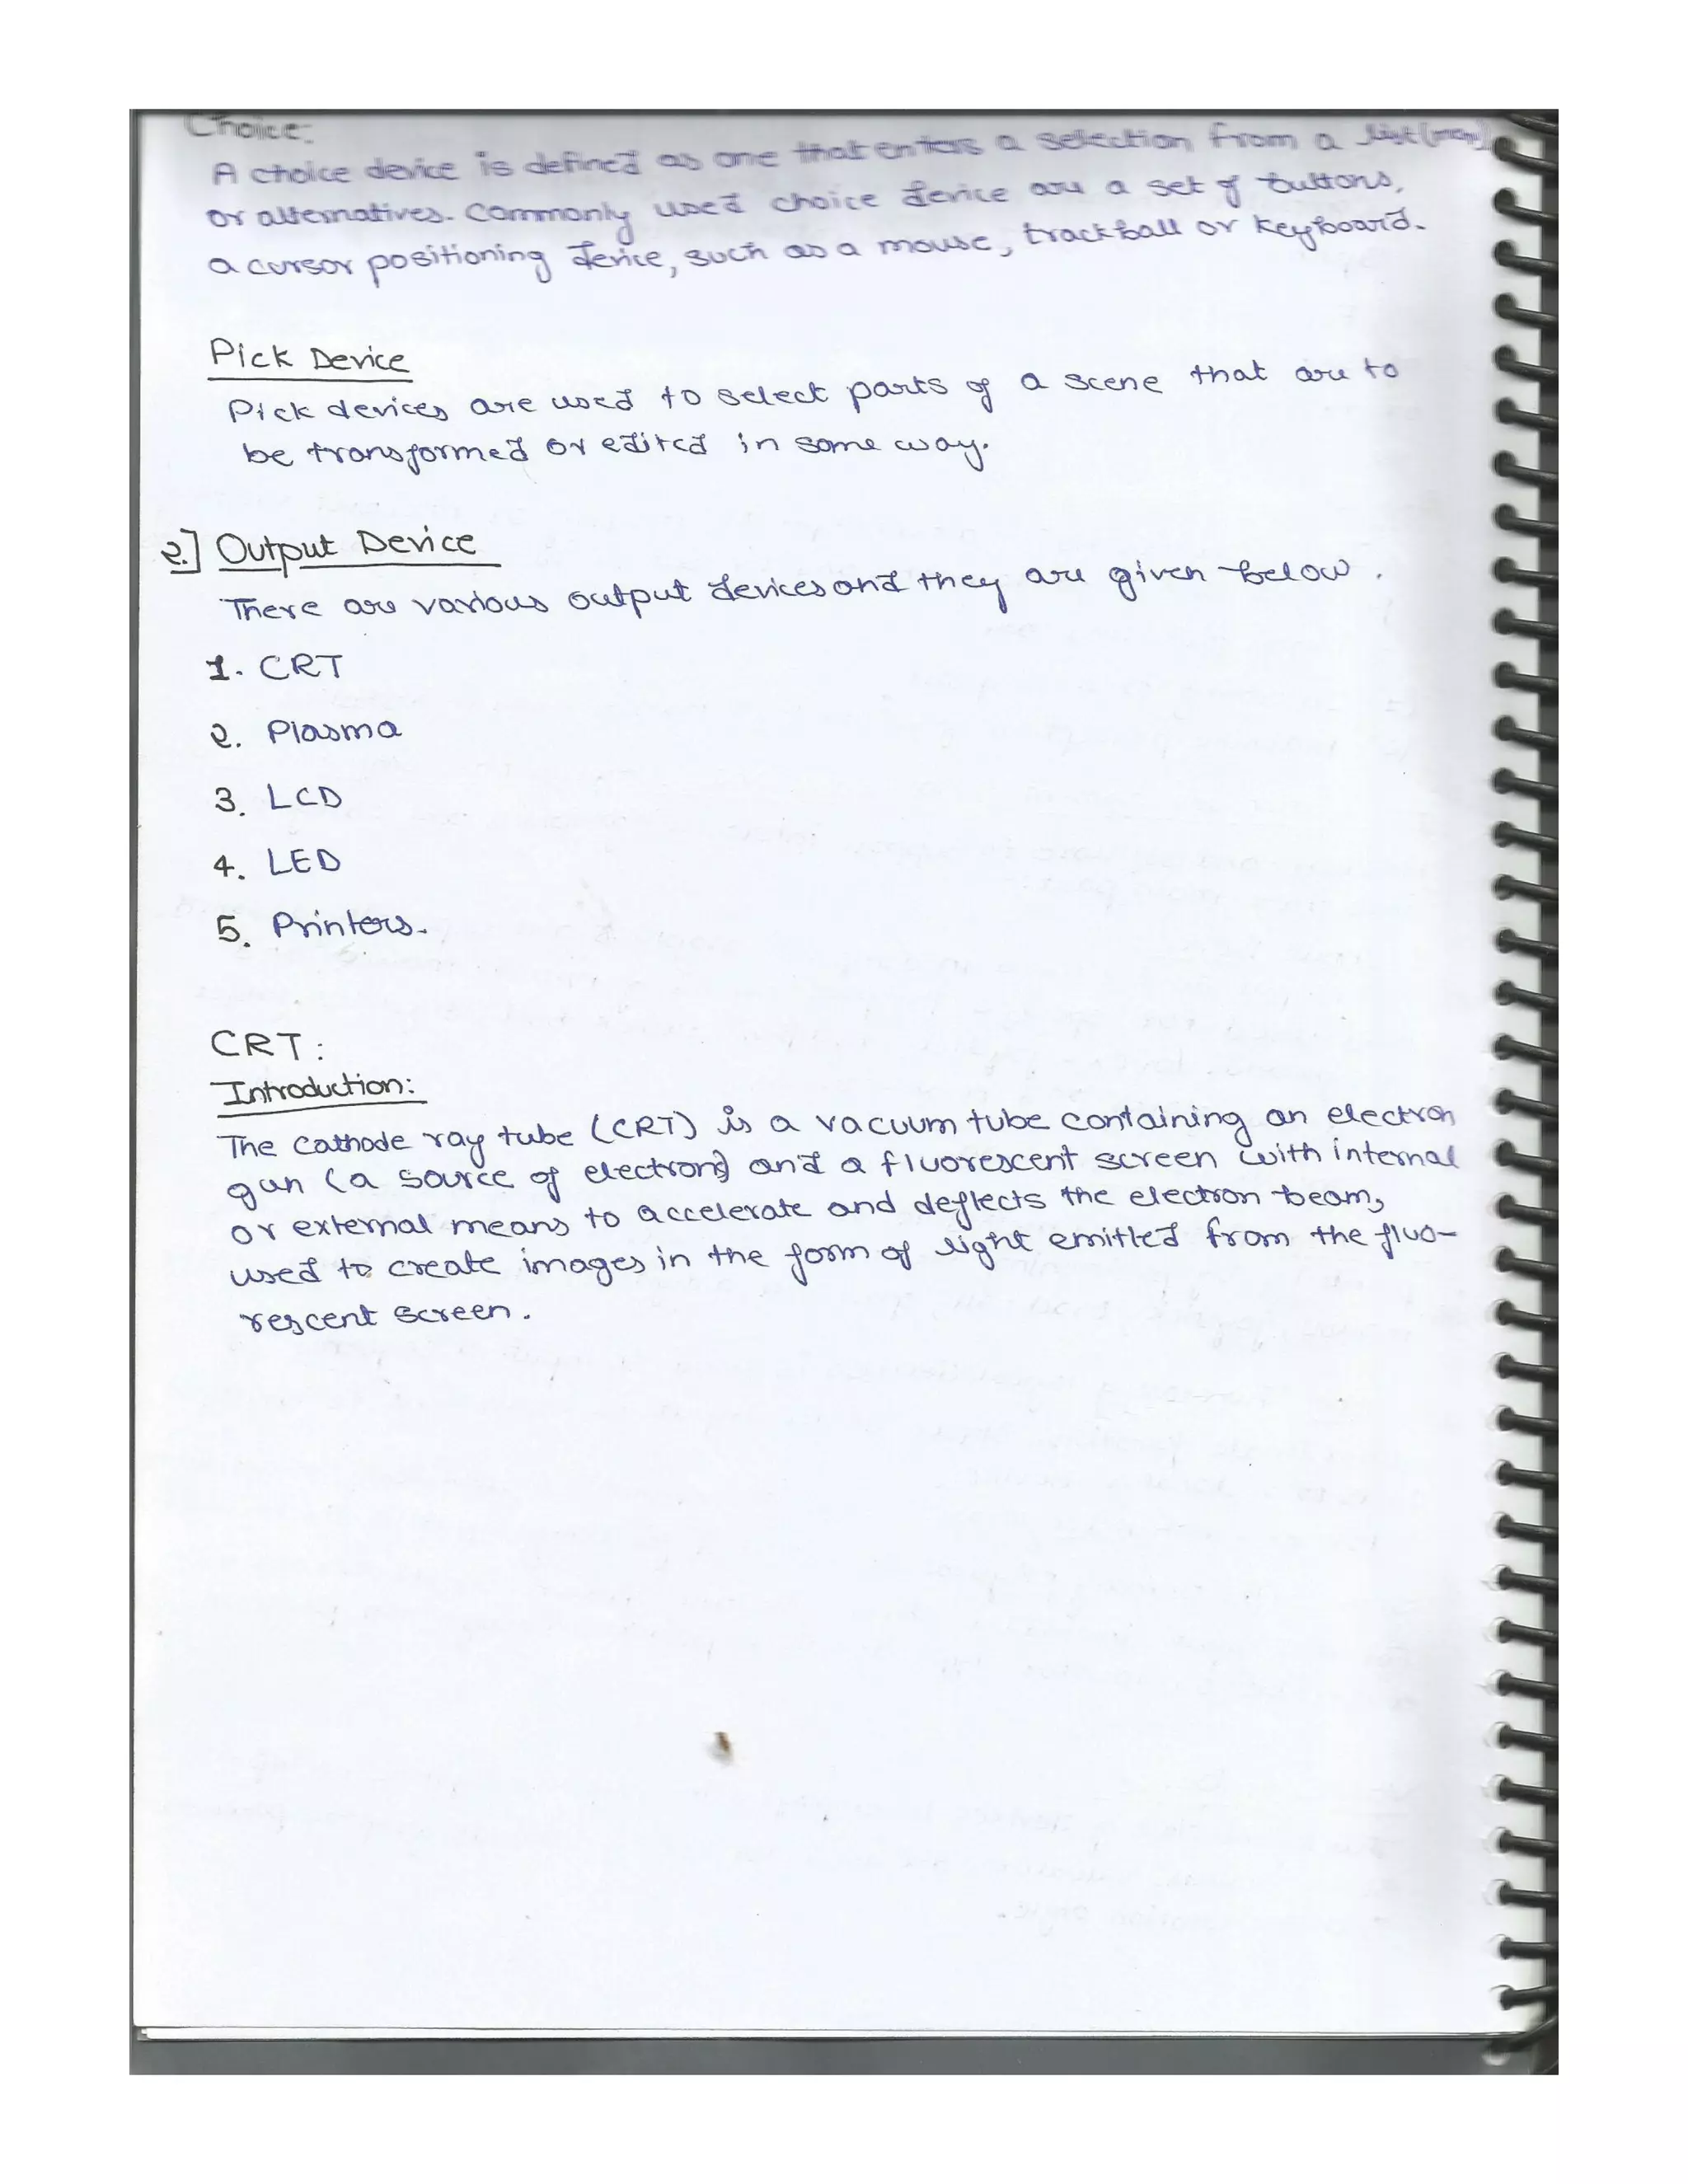 Choice:
A choice device is defined as one that enters a selection from a list (menu)
or alternatives. Commonly used choice device are a set of buttons,
a cursor positioning device, such as a mouse, trackball or keyboard.
Pick Device
Pick devices are used to select parts of a scene that are to
be transformed or edited in some way.
2.] Output Device
There are various output devices and they are given below.
1. CRT
2. Plasma
3. LCD
4. LED
5. Printers.
CRT:
Introduction:
The cathode ray tube (CRT) is a vacuum tube containing an electron
gun (a source of electrons) and a fluorescent screen with internal
or external means to accelerate and deflects the electron beam,
used to create images in the form of light emitted from the fluo-
rescent screen.